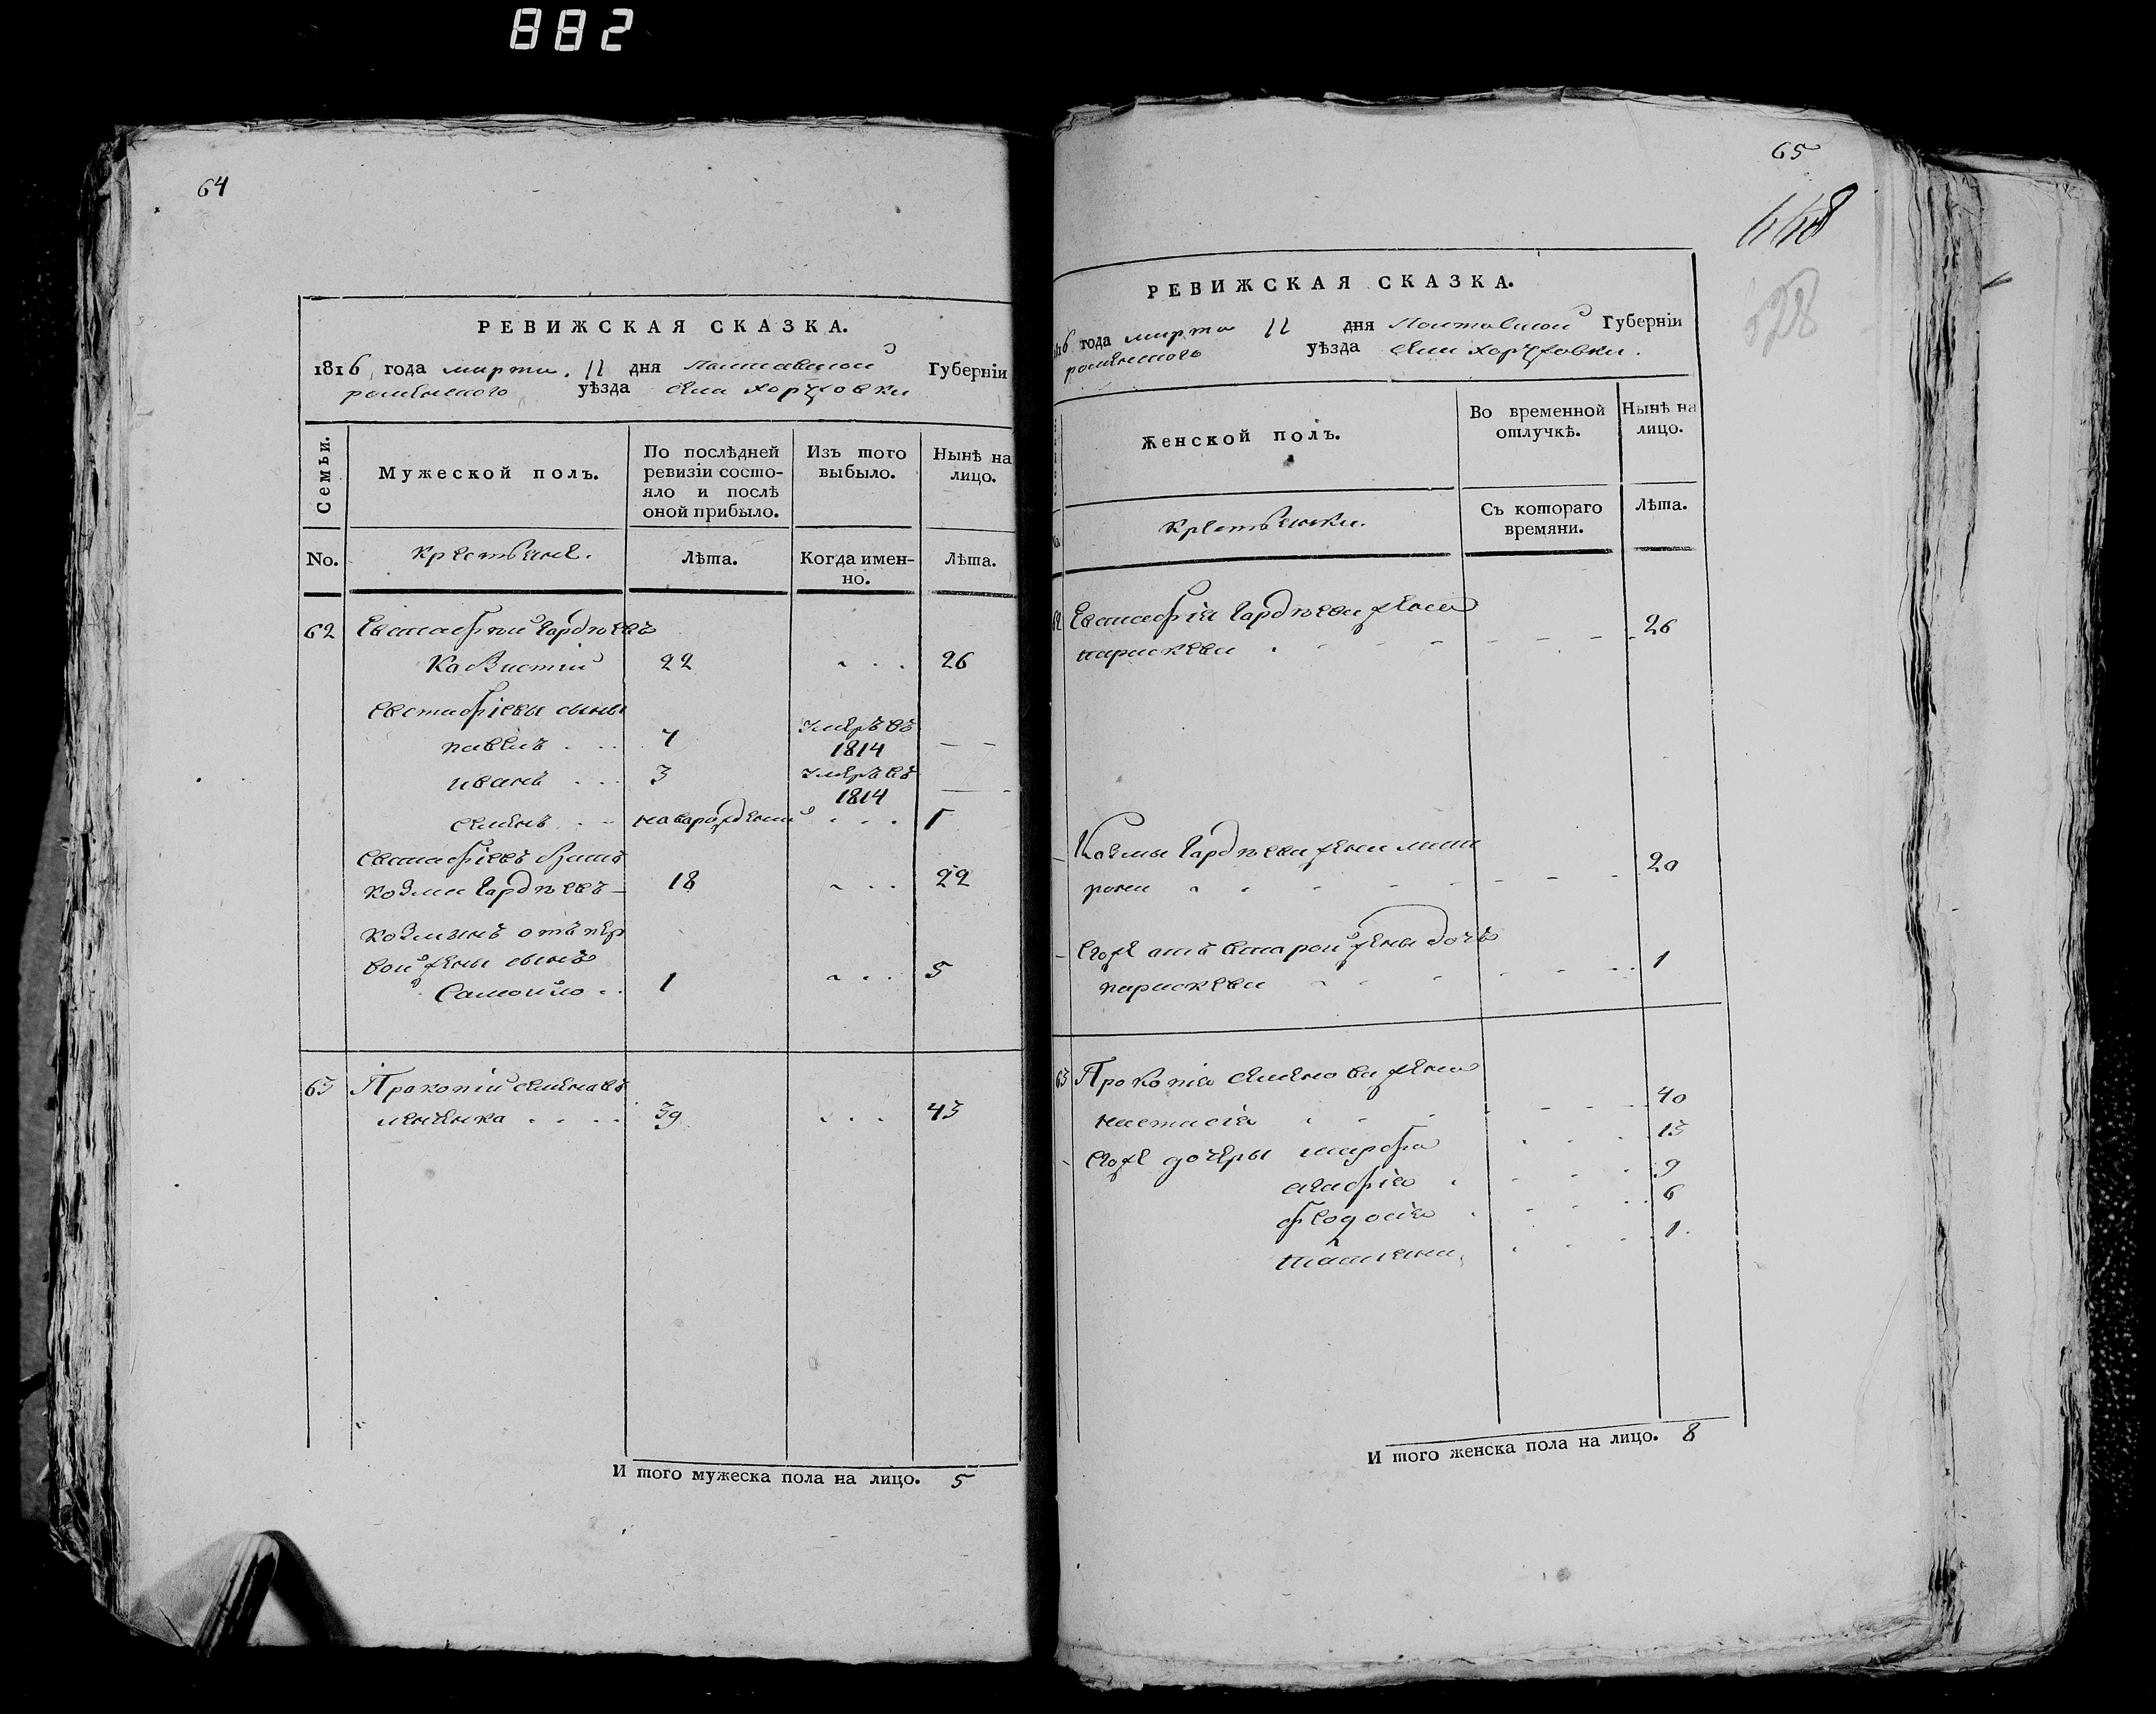 882
64
РЕВИЖСКАЯ СКАЗКА.
1816 года марта 11 дня Полтавской Губерніи
роменского уѣзда села
Семьи.
Мужеской полъ.
По послѣдней
ревизіи состо-
яло и послѣ
оной прибыло.
Изъ того
выбыло.
Нынѣ на
лицо.
No.
крестьяне.
Лѣта.
Когда имен-
но.
Лѣта.
62 Евстафѣй Гордѣевъ
22 26
Евстафіевы сыны
павелъ 7 умеръ въ
1814
иванъ 3 умеръ въ
1814
семенъ новорожденный 1
Евстафіевъ братъ
козма Гордѣевъ 18 22
козминъ отъ пер
вой жены сынъ
Самойло 1 5
63 Прокопій семеновъ
39 43
И того мужеска пола на лицо. 5
65
РЕВИЖСКАЯ СКАЗКА.
1816 года марта 11 дня Полтавской Губерніи
роменского уѣзда села
Женской полъ.
Во временной
отлучкѣ.
Нынѣ на
лицо.
крестьянки.
Съ котораго
времяни.
Лѣта.
62 Евстафія Гордѣева жена
парискева 26
Козмы Гордѣева жена мот
рона 20
Егоже отъ второй жены дочь
парискева 1
63 Прокопія семенова жена
настасія 40
Егоже дочеры марфа 13
агафія 9
феодосія 6
татіяна 1
И того женска пола на лицо. 8